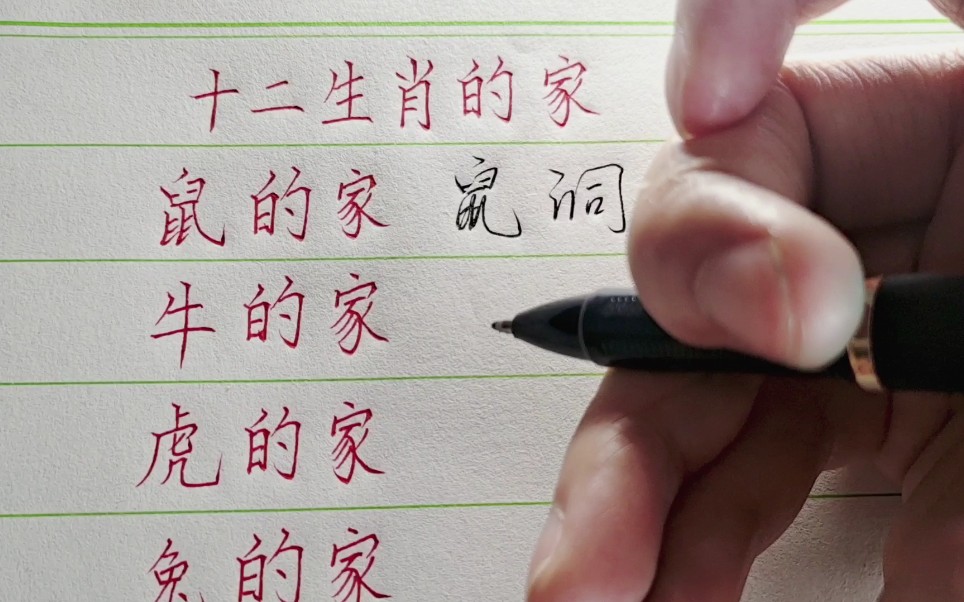 十二生肖的家
鼠的家 鼠洞
牛的家
虎的家
兔的家